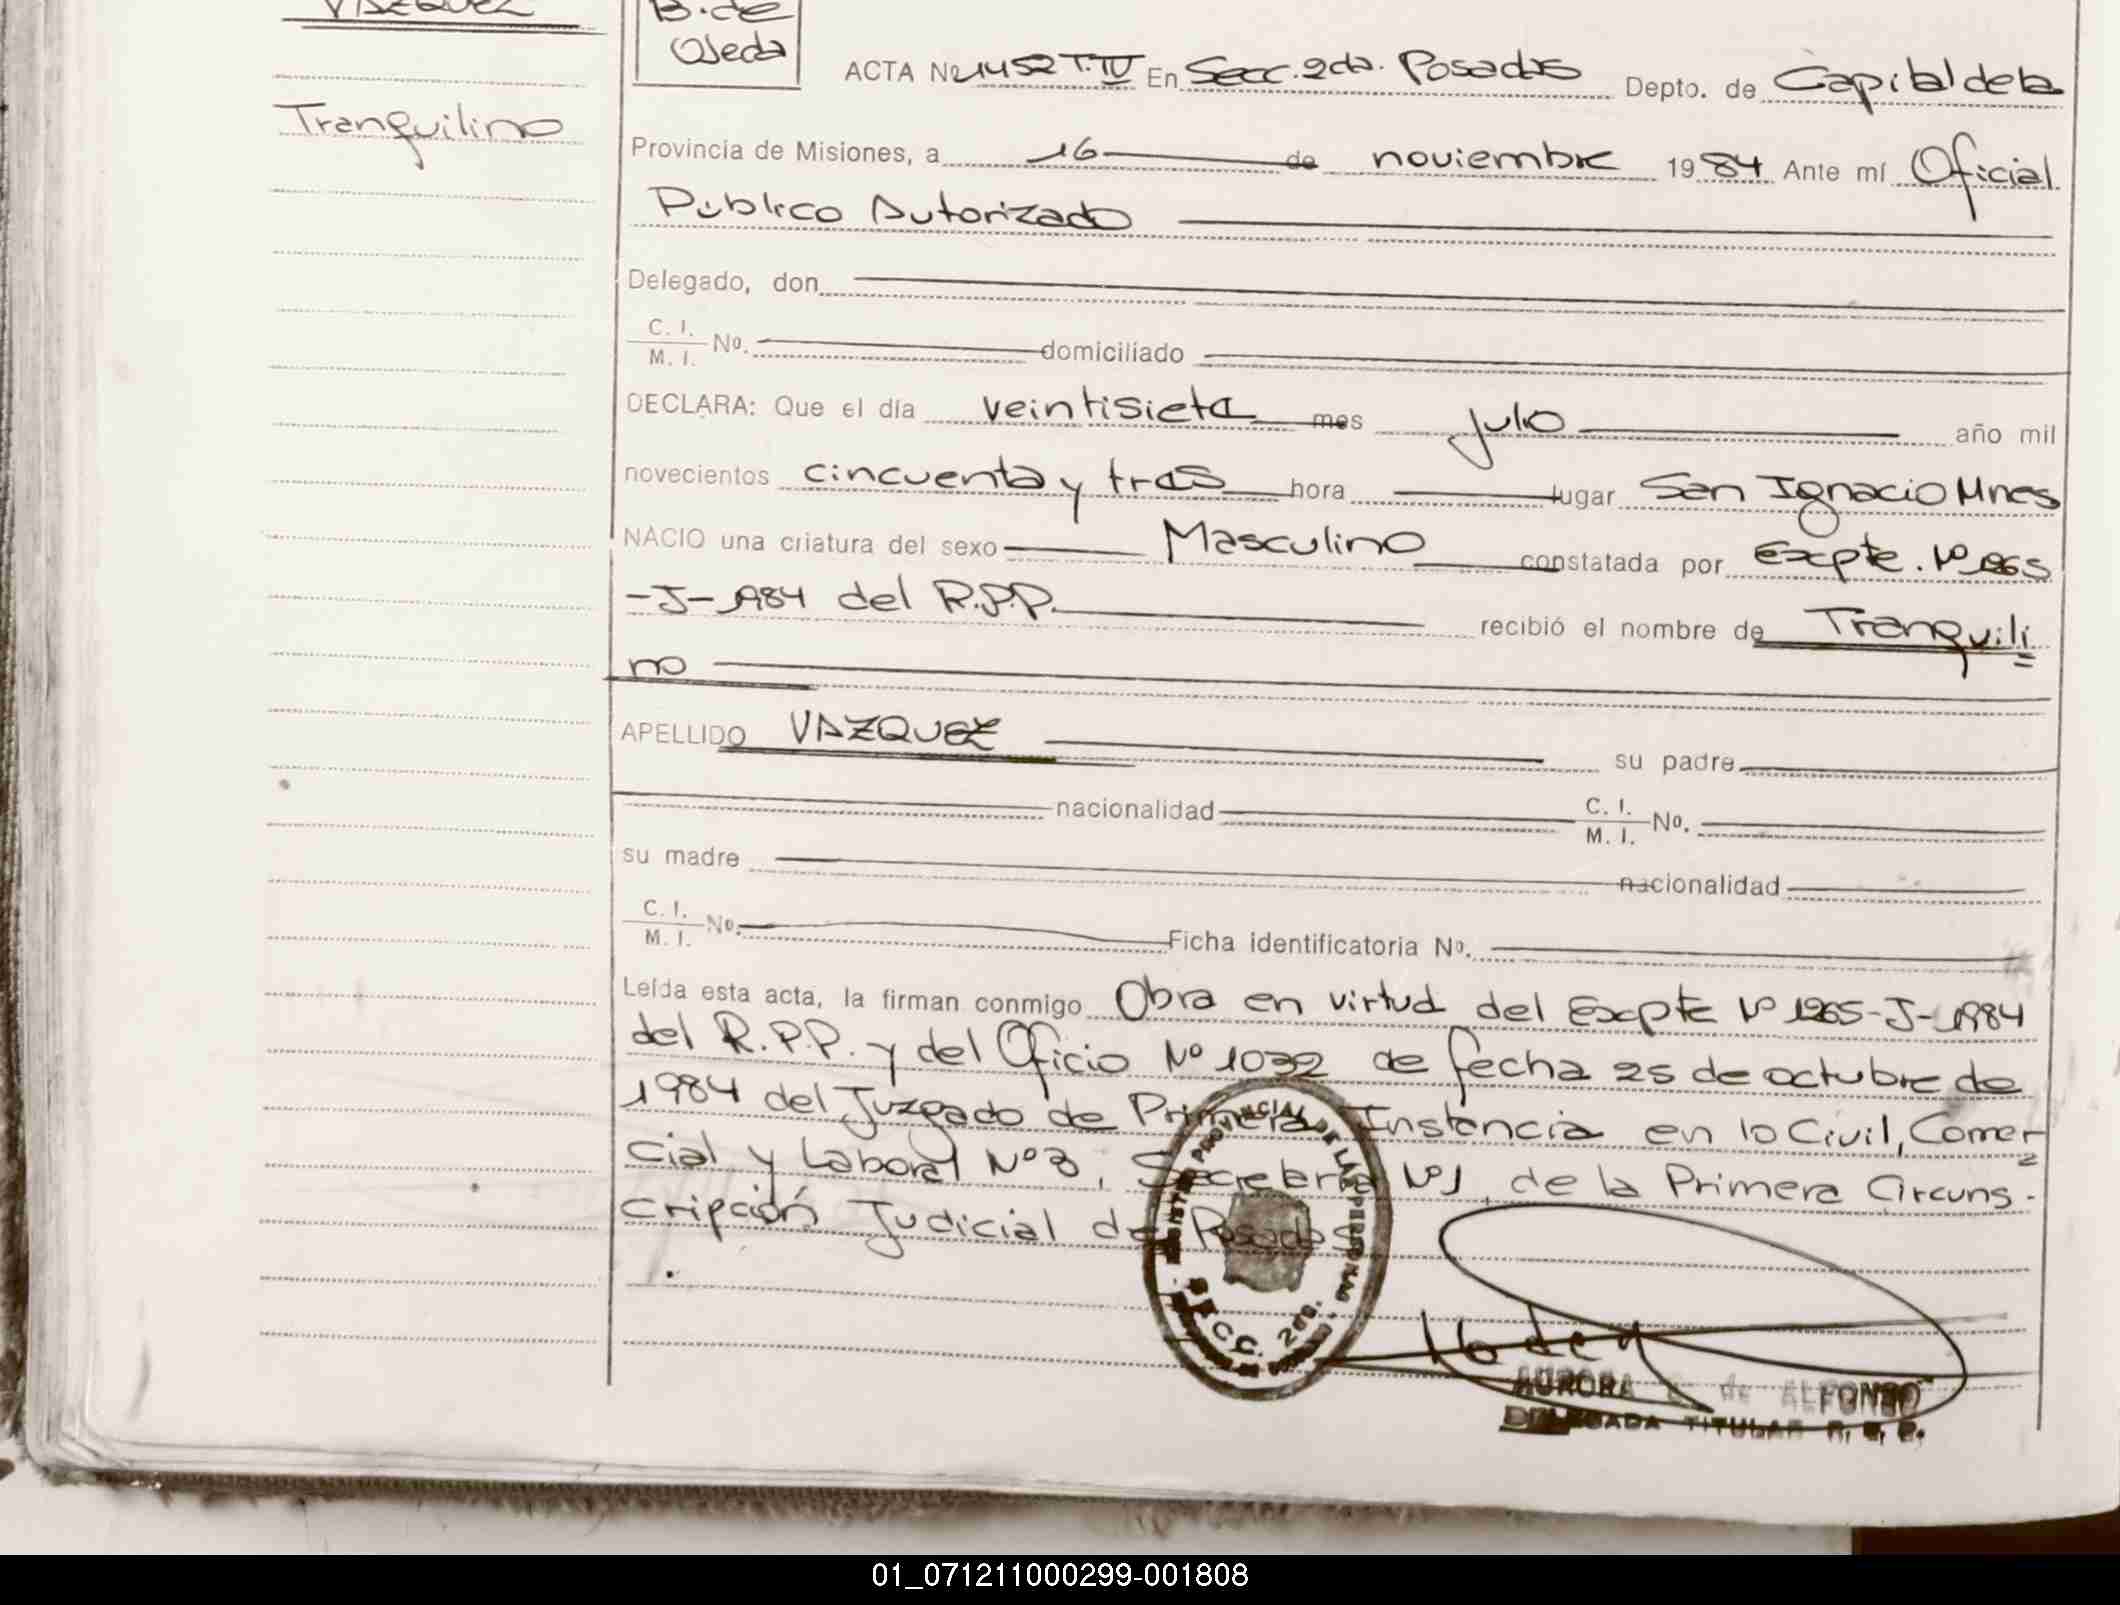 VAZQUEZ
B. de
Ojeda
ACTA Nº 1452 T. IV En Secc. 2da. Posadas Depto. de Capital de la
Tranquilino
Provincia de Misiones, a 16 de noviembre 1984 Ante mí Oficial
Publico Autorizado
Delegado, don
C. I.
M. I. No. domiciliado
DECLARA: Que el día veintisiete mes julio año mil
novecientos cincuenta y tres hora lugar San Ignacio Mnes
NACIO una criatura del sexo Masculino constatada por Expte. Nº 1265
-J-1984 del R.P.P. recibió el nombre de Tranquili
no
APELLIDO VAZQUEZ su padre
nacionalidad C. I.
M. I. No.
su madre nacionalidad
C. I.
M. I. No. Ficha identificatoria No.
Leída esta acta, la firman conmigo Obra en virtud del Expte Nº 1265-J-1984
del R.P.P. y del Oficio Nº 1032 de fecha 25 de octubre de
1984 del Juzgado de Primera Instancia en lo Civil, Comer
cial y Laboral Nº 3, Secretaria Nº 1, de la Primera Circuns-
cripción Judicial de Posadas
PROVINCIAL DE LAS PERSONAS
SECC. 2da.
AURORA de ALFONSO
DELEGADA TITULAR R. P. P.
01_071211000299-001808